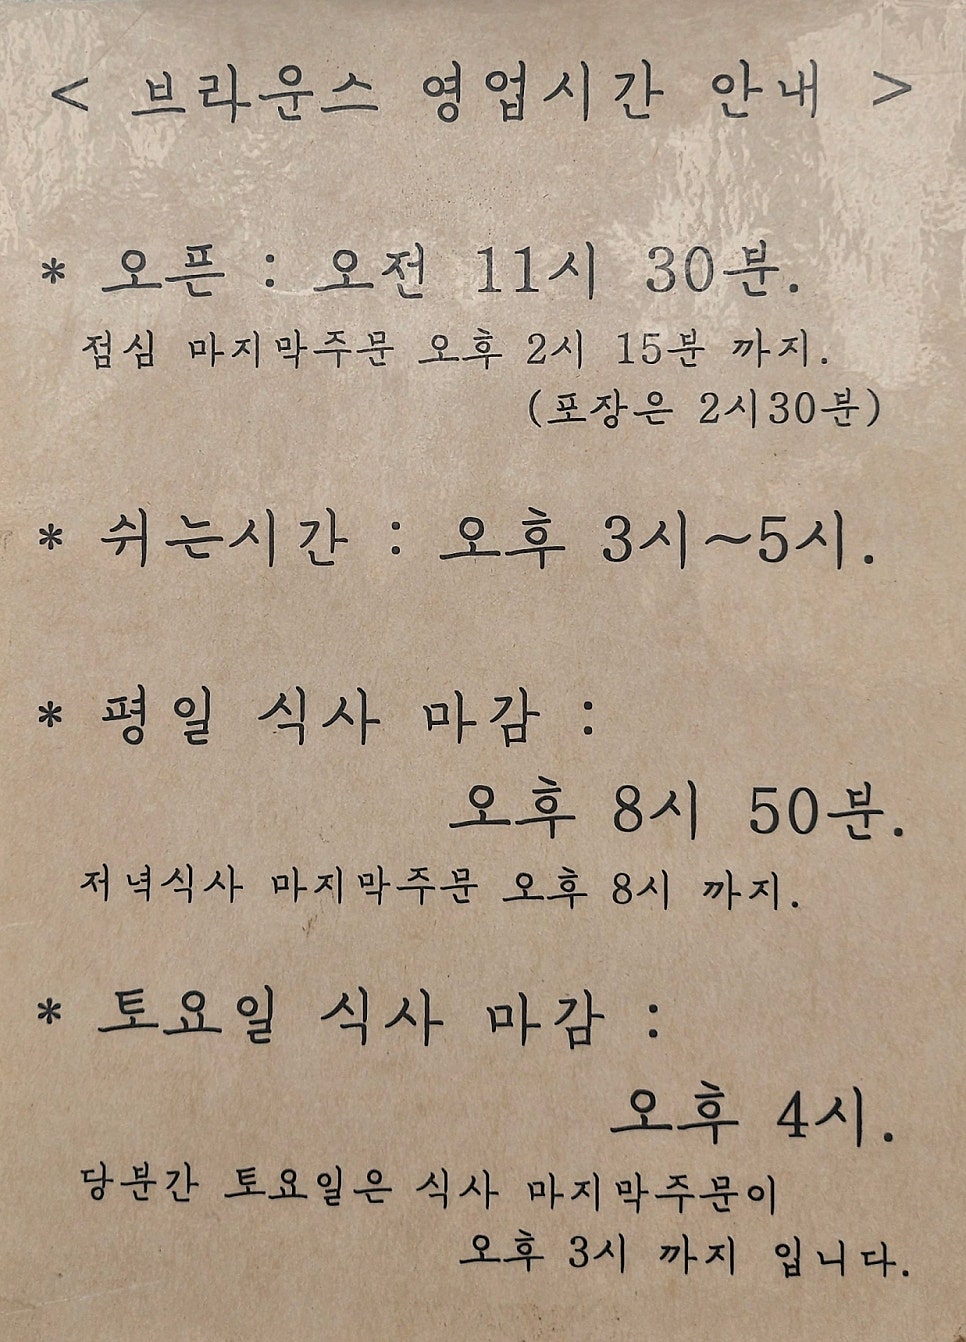 < 브라운스 영업시간 안내 >
* 오픈 : 오전 11시 30분.
점심 마지막주문 오후 2시 15분 까지.
(포장은 2시30분)
* 쉬는시간 : 오후 3시~5시.
* 평일 식사 마감 :
오후 8시 50분.
저녁식사 마지막주문 오후 8시 까지.
* 토요일 식사 마감 :
오후 4시.
당분간 토요일은 식사 마지막주문이
오후 3시 까지 입니다.